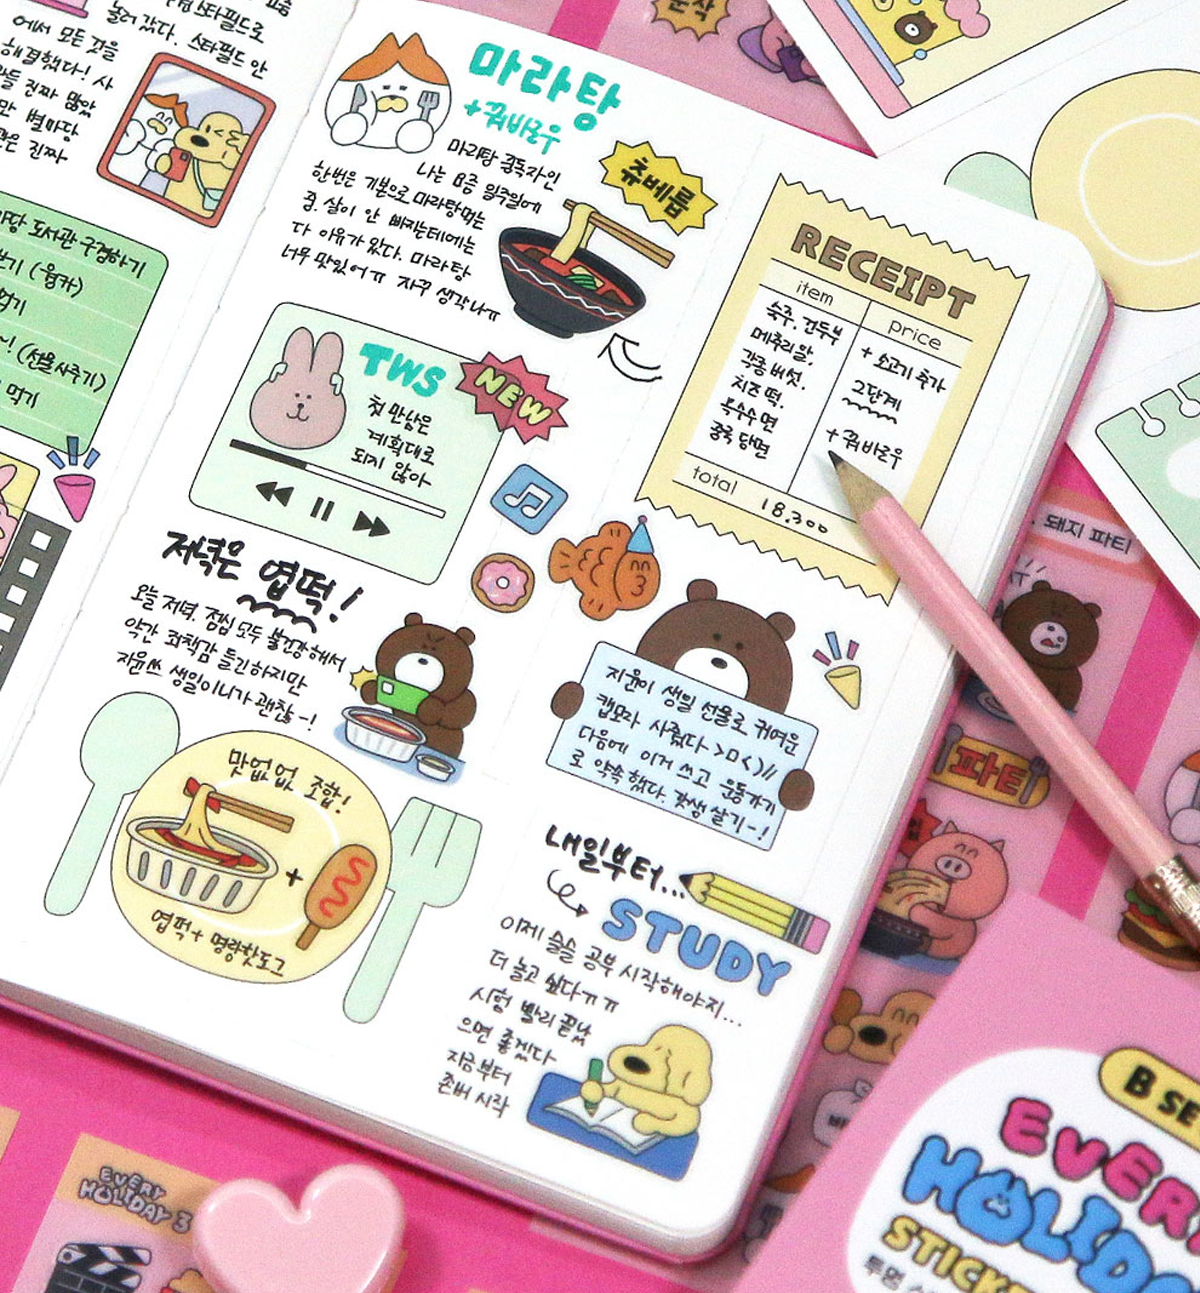 게서 모든 것을
해결했다! 사
놀러 갔다. 스타필드 안
만 별마당
진짜
도서관 구경하기
(선물사주기)
먹기
마라탕
+ 꿔바로우
마라탕 중독자인
나는 요즘 일주일에
한번은 기본으로 마라탕먹는
중. 살이 안 빠지는데에는
다 이유가 있다. 마라탕
너무 맛있어ㅠ 자꾸 생각나ㅠ
츄베릅
TWS
NEW
첫 만남은
계획대로
되지 않아
저녁은 엽떡!
오늘 저녁. 점심 모두 불건강해서
약간 죄책감 들긴하지만
지윤쓰 생일이니까 괜찮~!
맛없없 조합!
+
엽떡 + 명랑핫도그
RECEIPT
item
price
숙주. 건두부
메추리알.
각종 버섯.
치즈떡.
옥수수면
중국당면
+ 소고기 추가
2단계
+ 꿔바로우
total
18,300
지윤이 생일 선물로 귀여운
캡모자 사줬다 >ㅁ<)//
다음에 이거 쓰고 운동가기
로 약속했다. 갓생 살기~!
내일부터...
STUDY
이제 슬슬 공부 시작해야지...
더 놀고 싶다ㅠㅠ
시험 빨리 끝났
으면 좋겠다
지금부터
존버 시작
돼지 파티
파티
B SE
EVER
HOLIDA
STICKE
투명
EVERY
HOLIDAY 3